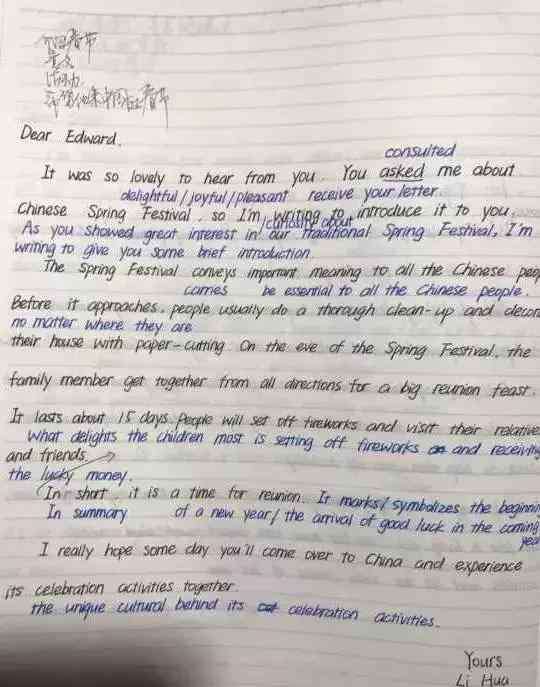 介绍春节
意义
活动
希望他来中国过春节
Dear Edward.
consulted
It was so lovely to hear from you. You asked me about
delightful/joyful/pleasant receive your letter.
Chinese Spring Festival, so I'm writing to introduce it to you.
/curiosity about
As you showed great interest in our traditional Spring Festival, I'm
writing to give you some brief introduction.
The Spring Festival conveys important meaning to all the Chinese peop
carries be essential to all the Chinese people.
Before it approaches, people usually do a thorough clean-up and decora
no matter where they are
their house with paper-cutting. On the eve of the Spring Festival, the
family member get together from all directions for a big reunion feast.
It lasts about 15 days. People will set off fireworks and visit their relative
What delights the children most is setting off fireworks and receiving
and friends.
the lucky money.
In short, it is a time for reunion. It marks/symbolizes the beginnin
In summary of a new year/the arrival of good luck in the coming
year
I really hope some day you'll come over to China and experience
its celebration activities together.
the unique cultural behind its celebration activities.
Yours
Li Hua